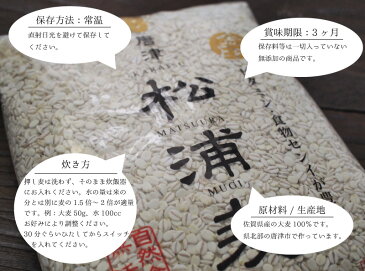 保存方法：常温
直射日光を避けて保存して
ください。
賞味期限：３ヶ月
保存料等は一切入っていない
無添加の商品です。
唐津
松浦
MATSUURA
MUGI
食物センイが
自然
炊き方
押し麦は洗わず、そのまま炊飯器
にお入れください。水の量は米の
分とは別に麦の１.５倍〜２倍が適量
です。例：大麦50g、水100cc
お好みにより調整ください。
30分ぐらいひたしてからスイッチ
を入れてください。
原材料 / 生産地
佐賀県産の大麦100%です。
県北部の唐津市で作っています。